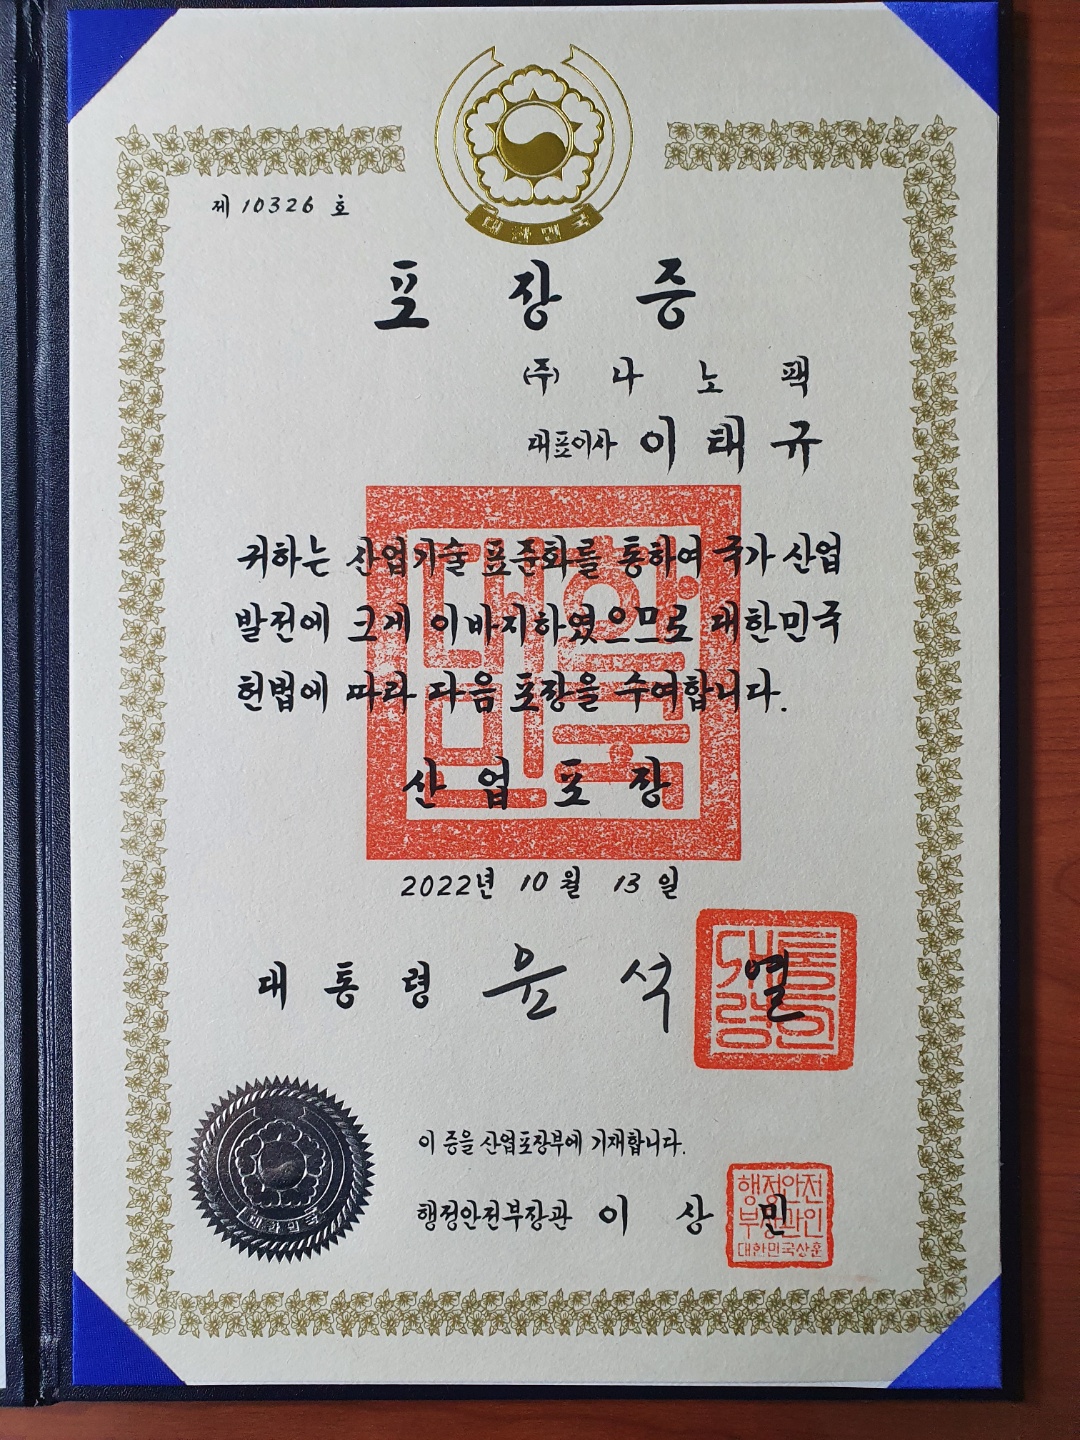 대한민국
제 10326 호
포장증
(주) 나노팩
대표이사 이태규
귀하는 산업기술 표준화를 통하여 국가 산업
발전에 크게 이바지하였으므로 대한민국
헌법에 따라 다음 포장을 수여합니다.
산업포장
2022년 10월 13일
대통령 윤석열
대통령의인
이 증을 산업포장부에 기재합니다.
행정안전부장관 이상민
행정안전
부장관인
대한민국상훈
대한민국